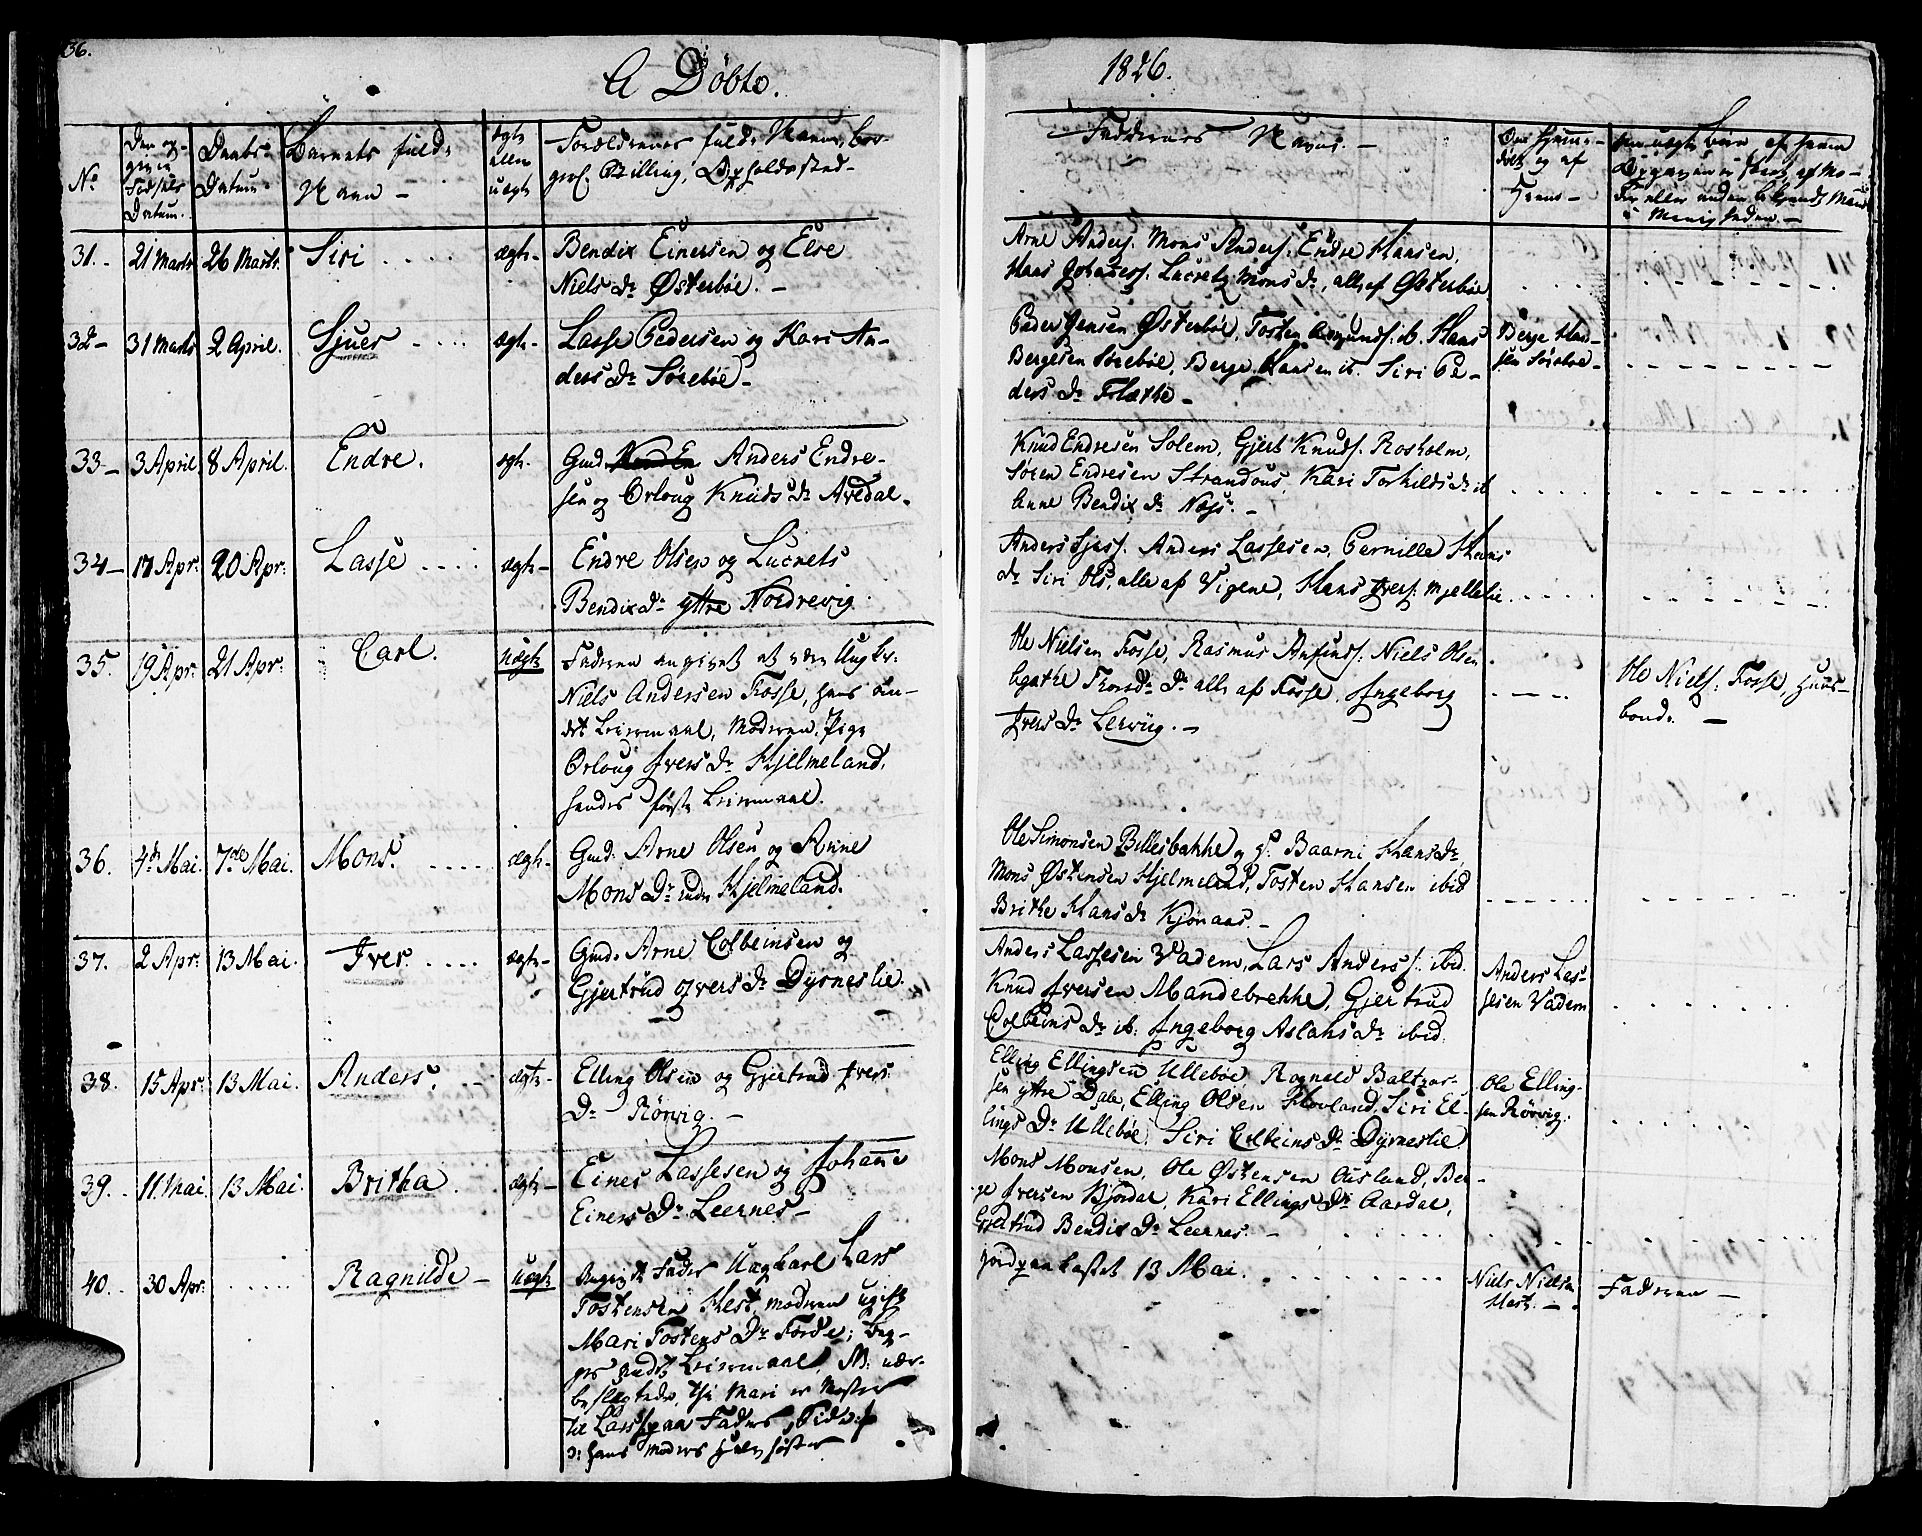 36.
A Döbte.
1826.
No
Den an-
given
Fødsels
Datum.
Daabs
Datum
Barnets fulde
Navn -
ægte
eller
uægte
Forældrenes fulde Navne, bor-
gerl. Stilling, Opholdssted-
Faddernes Navne. -
31. - 21 Marts 26 Marts. Siri . . . . ægte- Bendix Einersen og Else
Niels Dr Østerbøe. -
Arne Anders. Mons Anders. Endre Hansen,
Hans Johaness. Lucretz Mons Dr, alle af Østerbøe
32- 31 Marts 2 April. Sjuer - . . . . ægte- Lasse Pedersen og Kari An-
ders Dr Sørebøe-
Peder Jensen Østerbøe, Tosten Asmunds. ib. Hans
Bergesen Sørebøe, Berge Hansen ib. Siri Pe-
ders Dr Flæthe -
Berge Han-
sen Sørebøe-
33- 3 April. 8 April. Endre. ægte. Gmd. Anders Endre-
sen og Orloug Knuds Dr Avedal.
Knud Endresen Solem, Gjert Knuds. Rosholm,
Søren Endresen Strandous, Kari Torkilds Dr ib
Anne Bendix Dr Nøjs. -
34- 17 Apr: 20 Apr: Lasse . . . . ægte- Endre Olsen og Lucrets
Bendix Dr yttre Nordrevig.
Anders Sjurs. Anders Lassesen, Pernille Hans
Dr Siri Ols, alle af Vigene, Hans Ivers. Mjellelie
35. 19 Apr: 21 Apr: Carl. uægte Faderen angivet at være Ungkr:
Niels Andersen Fosse, hans an-
det Leiermaal, Moderen Pige
Orloug Ivers Dr Hjelmeland,
hendes første Leiermaal.
Ole Nielsen Fosse, Rasmus Anfinds. Niels Olsen
Agathe Thors Dr alle af Fosse, Ingeborg
Ivers Dr Lervig. -
Ole Niels. Fosse, Huus-
bond. -
36. 4de Mai. 7de Mai. Mons. . . . . ægte- Gmd. Arne Olsen og Anne
Mons Dr indre Hjelmeland.
Ole Simonsen Billesbakke og H. Baarni Hans Dr,
Mons Østensen Hjelmeland, Tosten Hansen ibid
Brithe Hans Dr Kjønaas. -
37. 2 Apr: 13 Mai. Iver. . . . . ægte- Gmd. Arne Colbeinsen og
Gjertrud Ivers Dr Dyrneslie.
Anders Lassesen Vadem, Lars Anders s. ibid.
Knud Iversen Mandebrekke, Gjertrud
Colbeins Dr ib. Ingeborg Aslaks Dr ibid.
Anders Las-
sesen Vadem
38. 15 Apr: 13 Mai. Anders. - ægte- Elling Olsen og Gjertrud Ivers
Dr Rörvig. -
Elling Ellingsen Ullebøe, Rognald Baltzar-
sen yttre Dale, Elling Olsen Hovland, Siri El-
lings Dr Ullebøe, Siri Colbeins Dr Dyrneslie
Ole Elling-
sen Rørvig:
39. 11. Mai. 13 Mai. Britha . ægte- Einer Lassesen og Johanne
Einers Dr Leernes-
Mons Monsen, Ole Østensen Ausland, Ber-
ge Iversen Njordal, Kari Ellings Dr Aardal,
Gjertrud Bendix Dr Leernes. -
40. . 30 Apr. Ragnilde - uægte Angivt Fader Ungkarl Lars
Tostensen Hest, Moderen ugift
Mari Tostens Dr Førde; Beg-
ges andet Leiermaal. NB: nær-
beslegtede, thi Mari er Moster
til Lars paa Faders Side
ɔ: hans Moders halvsøster
Jordpaakastet 13 Mai.
Niels Nielsen
Hest. -
Faderen -